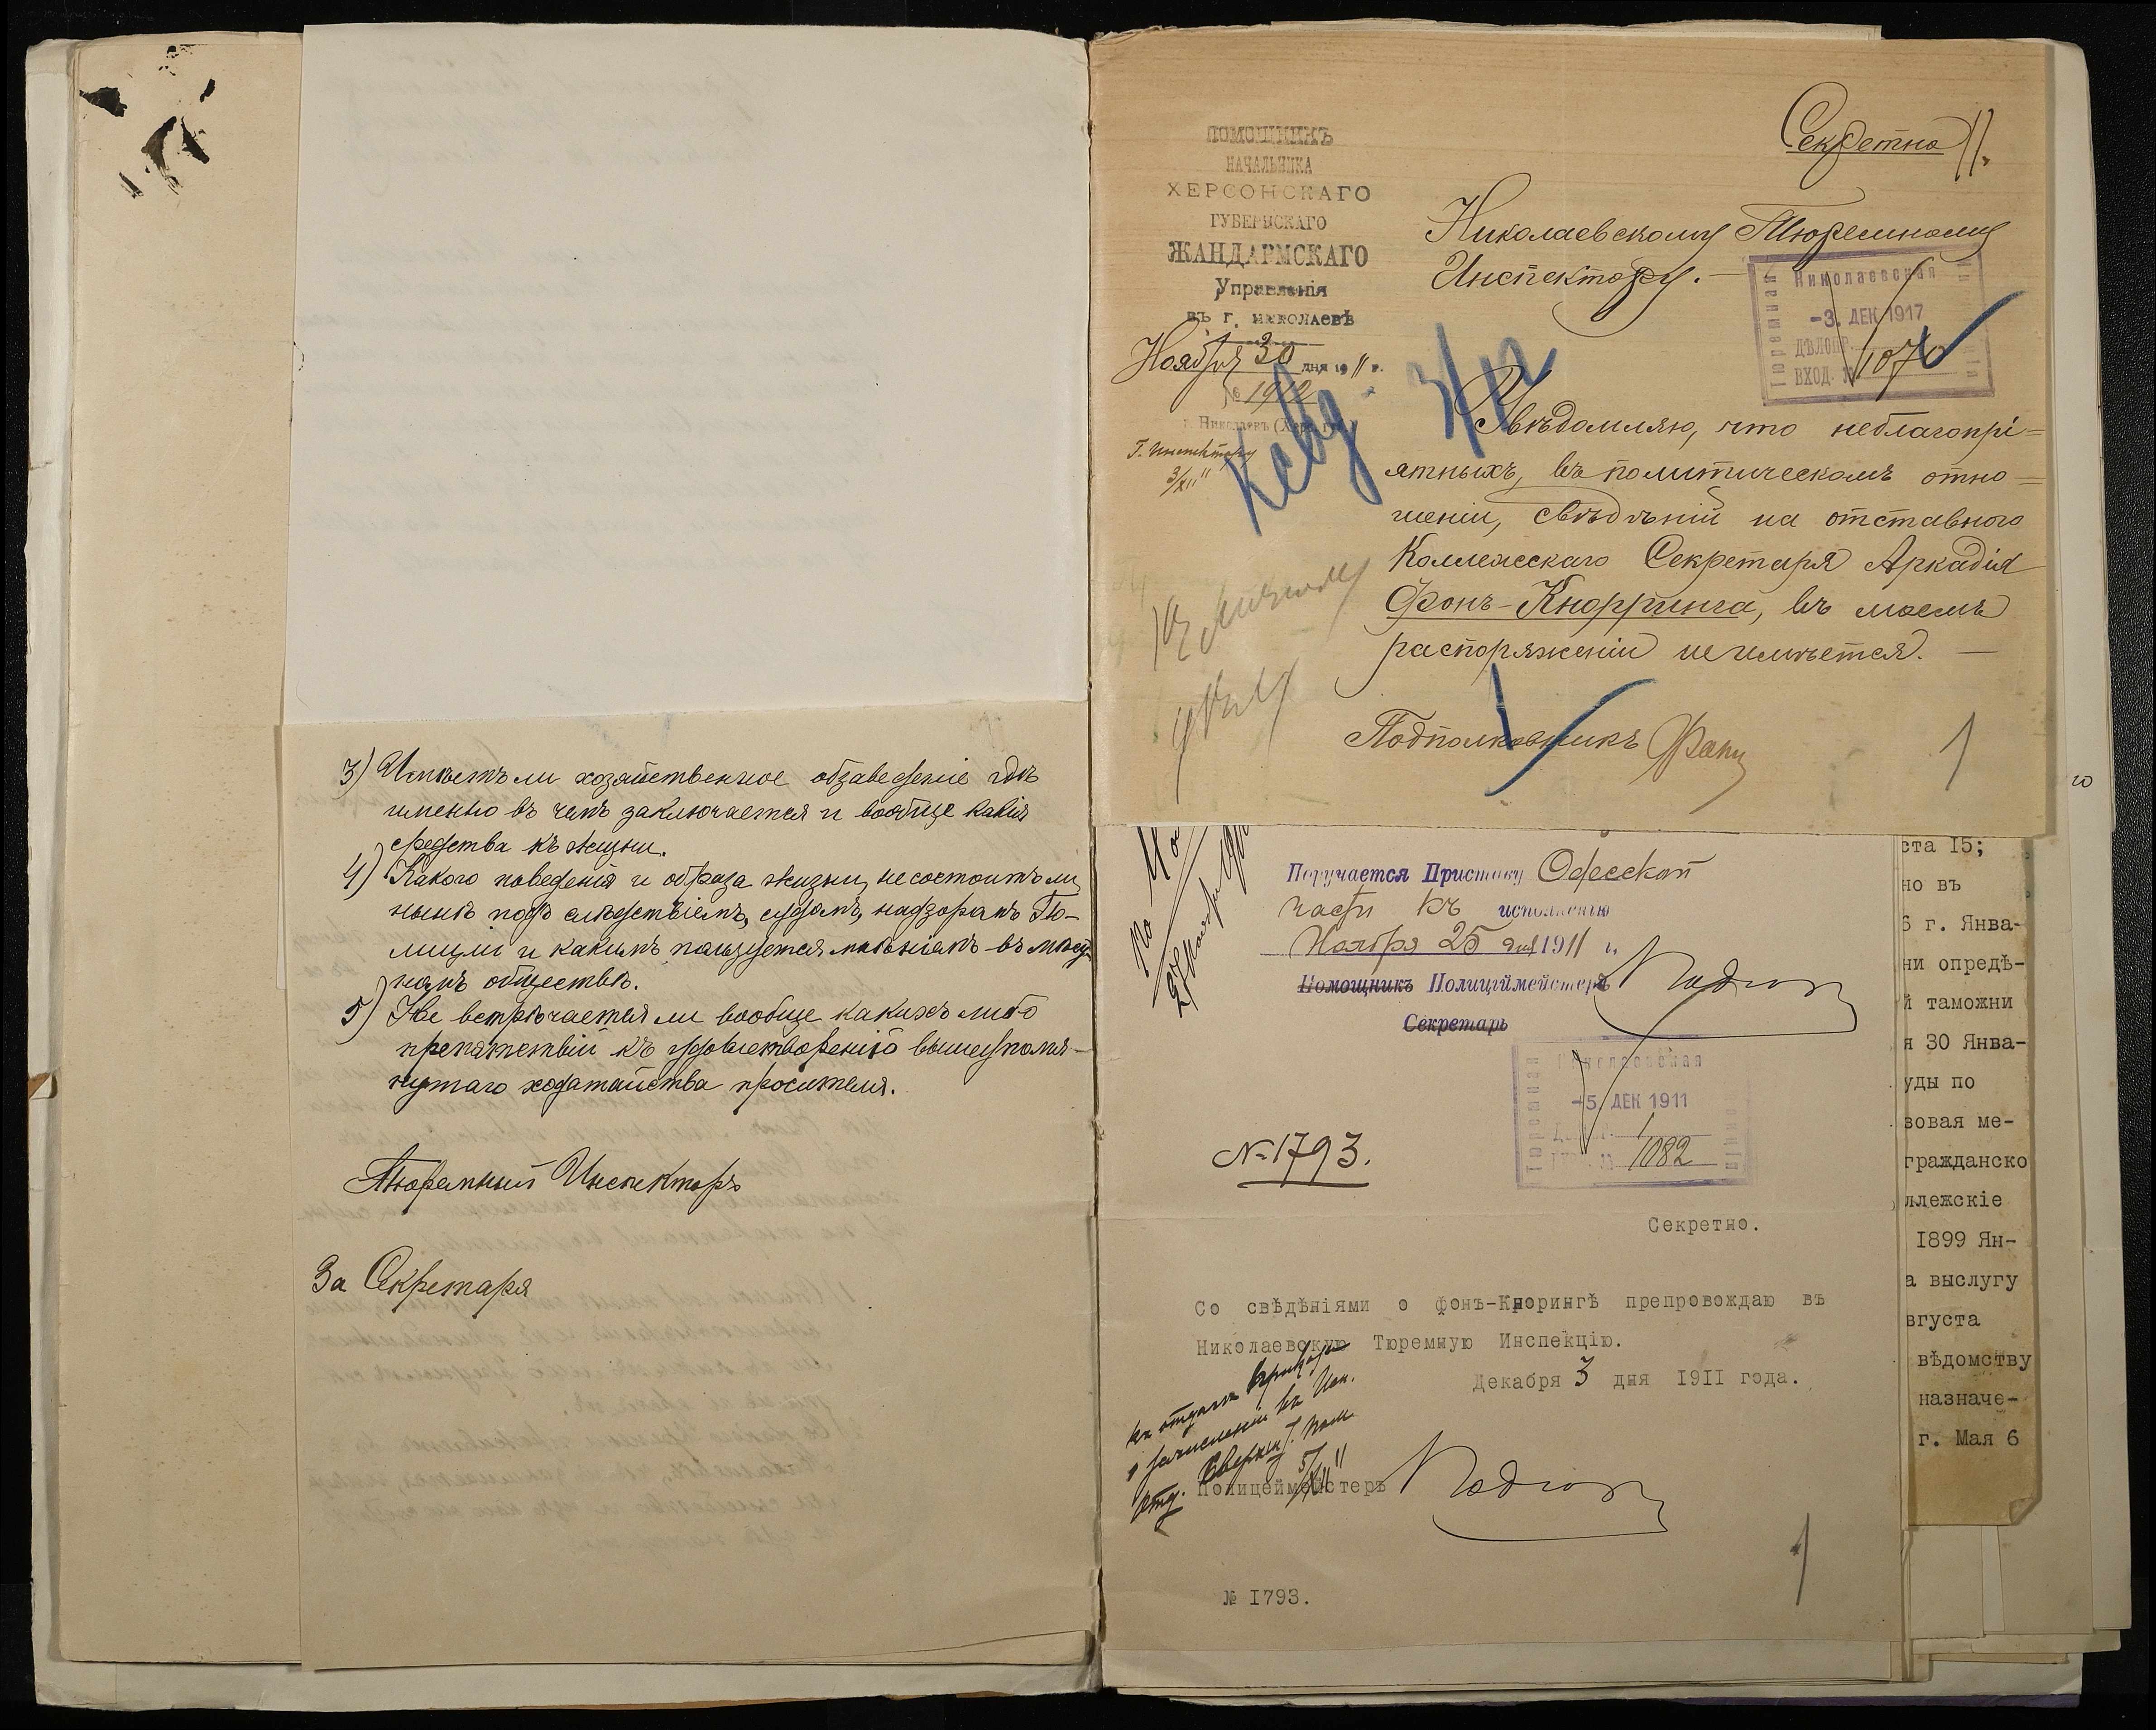 3) Имѣетъ ли хозяйственное обзаведеніе гдѣ
именно въ чемъ заключается и вообще какія
средства къ жизни.
4) Какого поведенія и образа жизни, не состоитъ ли
нынѣ подъ слѣдствіемъ, судомъ, надзоромъ По-
лиціи и какимъ пользуется мнѣніемъ въ мѣст-
номъ обществѣ.
5) Не встрѣчается ли вообще какихъ либо
препятствій къ удовлетворенію вышеупомя-
нутаго ходатайства просителя.
Тюремный Инспекторъ
За Секретаря
Секретно
11.
ПОМОЩНИКЪ
НАЧАЛЬНИКА
ХЕРСОНСКАГО
ГУБЕРНСКАГО
ЖАНДАРМСКАГО
Управленія
въ г. НИКОЛАЕВѢ
Ноября 30 дня 1911 г.
№ 1912
г. Николаевъ (Херс. г.)
Г. Инспектору
3/XII 11
Николаевскому Тюремному
Инспектору.
Николаевская
Тюремная
-3. ДЕК 1917
ДѢЛОПР.
ВХОД. № 1070
3/12
Увѣдомляю, что неблагопрі=
ятныхъ, въ политическомъ отно=
шеніи, свѣдѣній на отставного
Коллежскаго Секретаря Аркадія
Фонъ-Кнорринга, въ моемъ
распоряженіи не имѣется. —
Подполковникъ
1
Поручается Приставу Одесской
части къ исполненію
Ноября 25 дня 1911 г.
Помощникъ Полиціймейстера
Секретарь
Николаевская
Тюремная
-5. ДЕК 1911
1082
№ 1793.
Секретно.
Со свѣдѣніями о фонъ-Кнорингѣ препровождаю въ
Николаевскую Тюремную Инспекцію.
Декабря 3 дня 1911 года.
5/XII 11
Полицеймейстеръ
№ 1793.
1
го
ста 15;
но въ
6 г. Янва-
ни опредѣ-
й таможни
я 30 Янва-
уды по
зовая ме-
гражданско
ллежскіе
1899 Ян-
а выслугу
вгуста
вѣдомству
назначе-
г. Мая 6